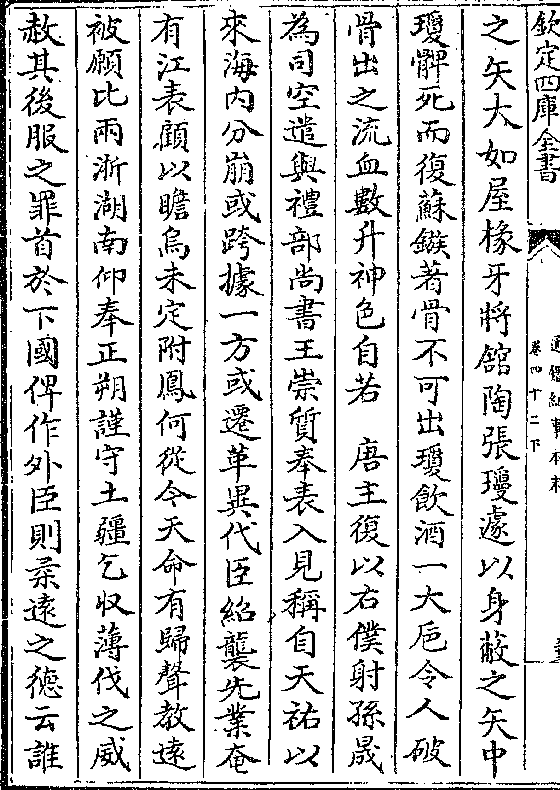 欽定四庫全書
通鑑紀事本末
卷四十二下
之矢大如屋椽牙將館陶張瓊遽以身蔽之矢中
瓊髀死而復蘇鏃著骨不可出瓊飲酒一大巵令人破
骨出之流血數升神色自若　唐主復以右僕射孫晟
為司空遣與禮部尚書王崇質奉表入見稱自天祐以
來海內分崩或跨據一方或遷革異代臣紹襲先業奄
有江表顧以瞻烏未定附鳳何從今天命有歸聲教遠
被願比兩浙湖南仰奉正朔謹守土疆乞収薄伐之威
赦其後服之罪首於下國俾作外臣則柔遠之德云誰